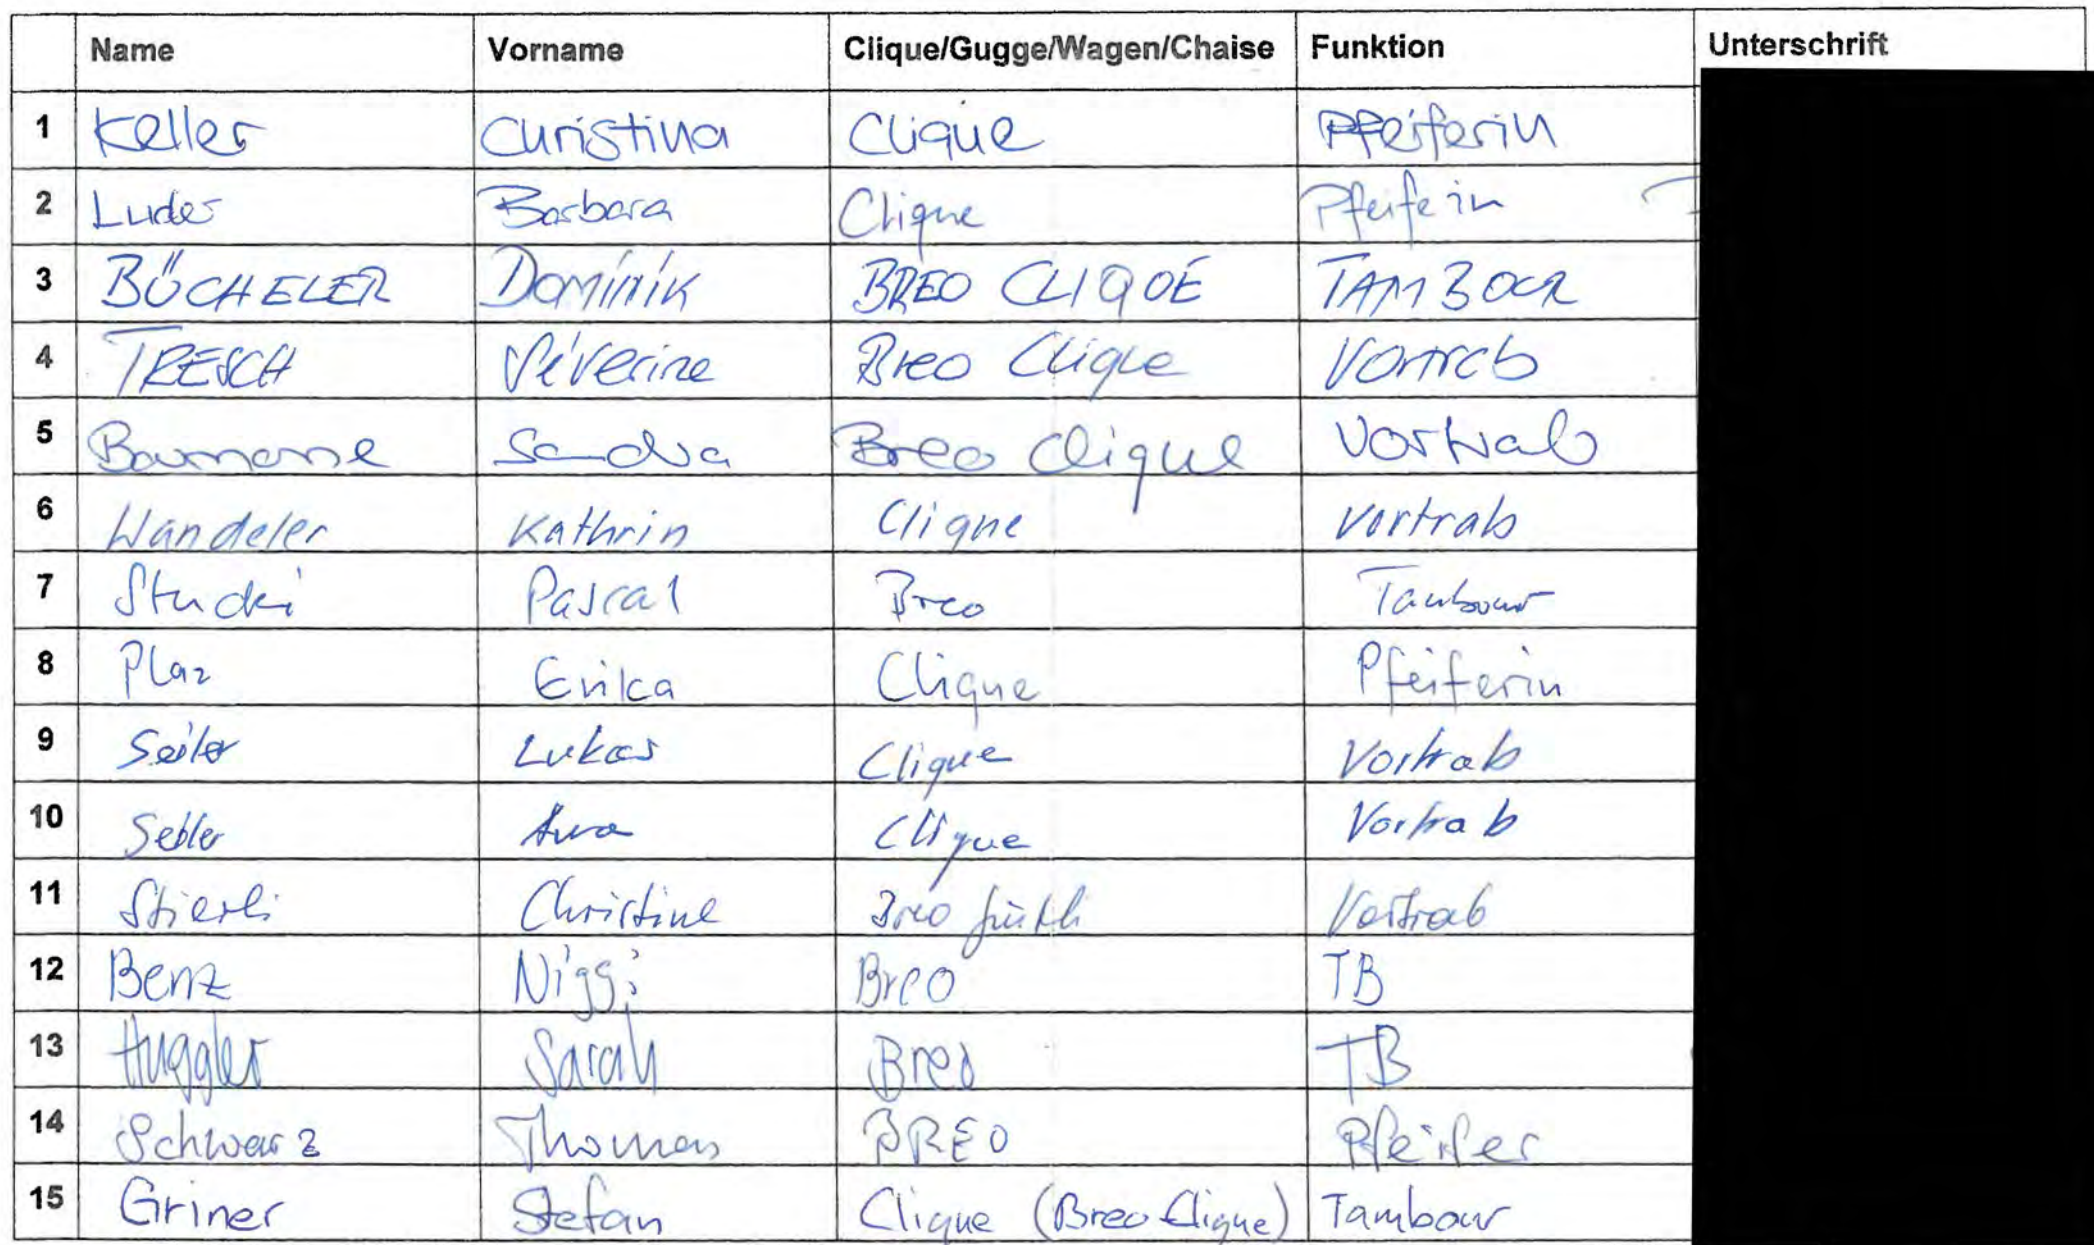 Name Vorname Clique/Gugge/Wagen/Chaise Funktion Unterschrift
1 Keller Christina Clique Pfeiferin
2 Luder Barbara Clique Pfeiferin
3 BÜCHELER Dominik BREO CLIQUE TAMBOUR
4 TRESCH Séverine Breo Clique Vortrab
5 Baumann Sandra Breo Clique Vortrab
6 Wandeler Kathrin Clique Vortrab
7 Stucki Pascal Breo Tambour
8 Plaz Erika Clique Pfeiferin
9 Seiler Lukas Clique Vortrab
10 Seiler Clique Vortrab
11 Stierli Christine Breo Vortrab
12 Benz Niggi Breo TB
13 Huggler Sarah Breo TB
14 Schwarz Thomas BREO Pfeifer
15 Griner Stefan Clique (Breo Clique) Tambour